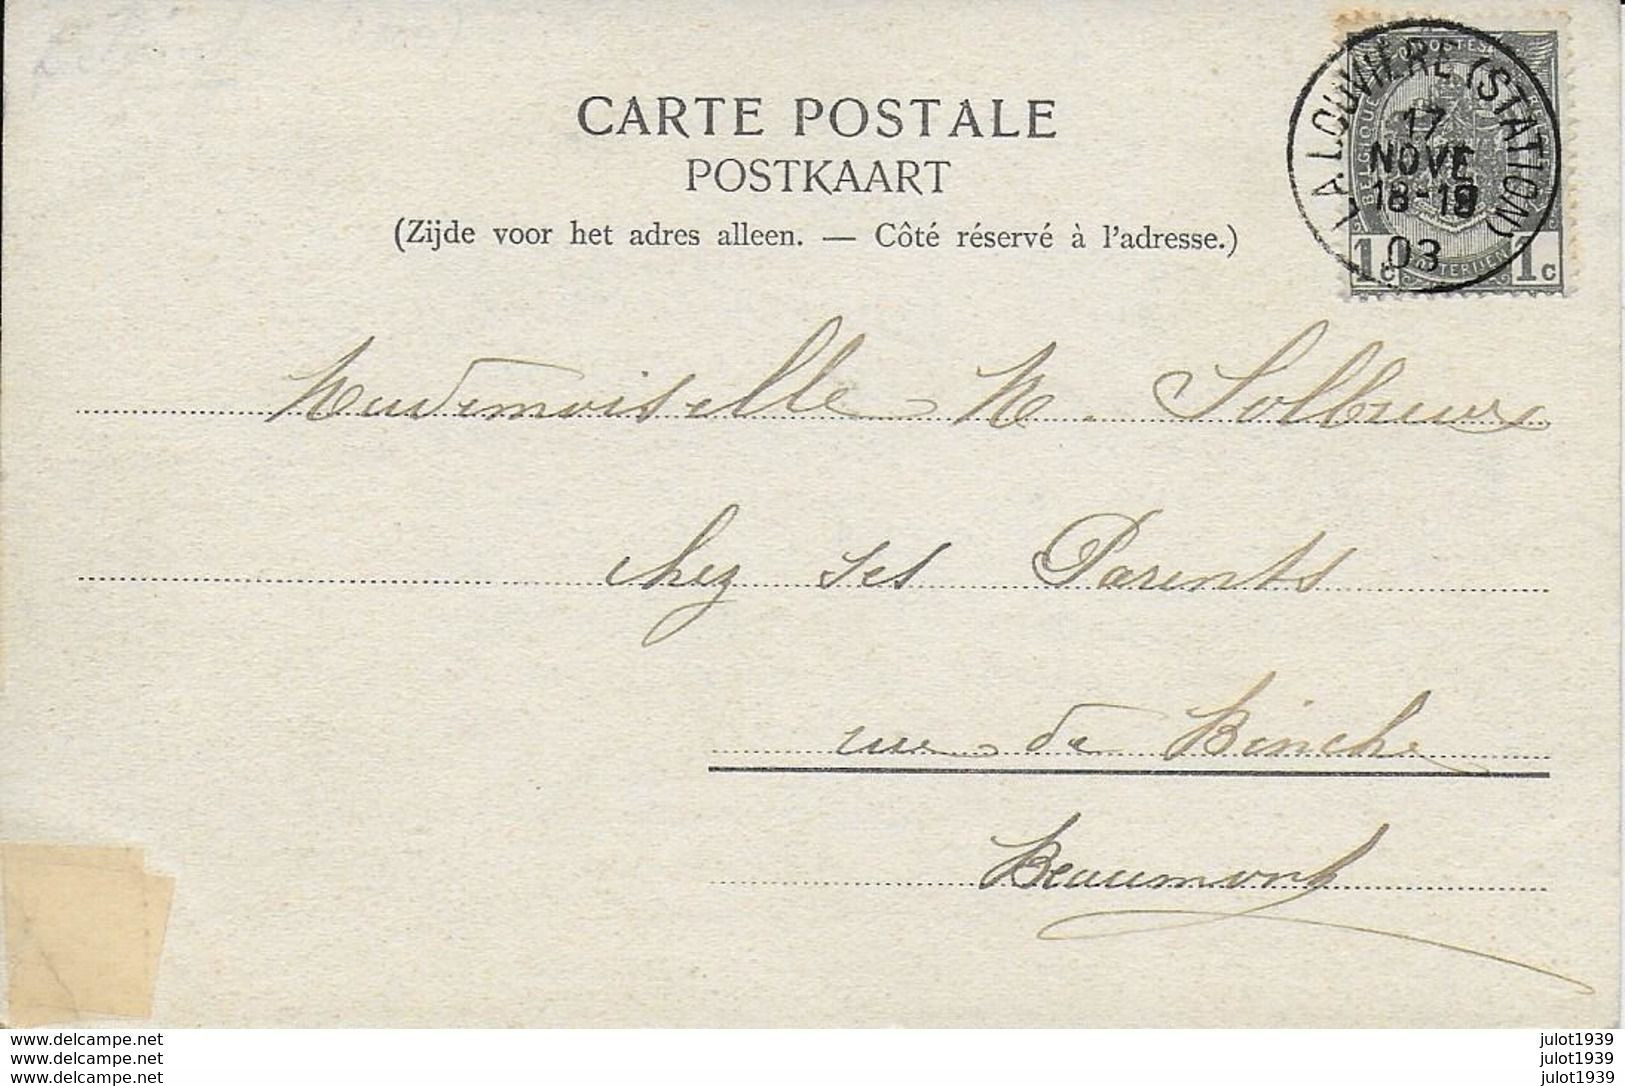 CARTE POSTALE
POSTKAART
(Zijde voor het adres alleen. — Côté réservé à l'adresse.)
LA LOUVIÈRE (STATION)
17
NOVE
18-19
03
BELGIQUE
POSTERIJEN
1c 1c
Mademoiselle M. Solbreux
chez ses Parents
rue de Binche
Beaumont
www.delcampe.net julot1939
www.delcampe.net julot1939
www.delcampe.net julot1939